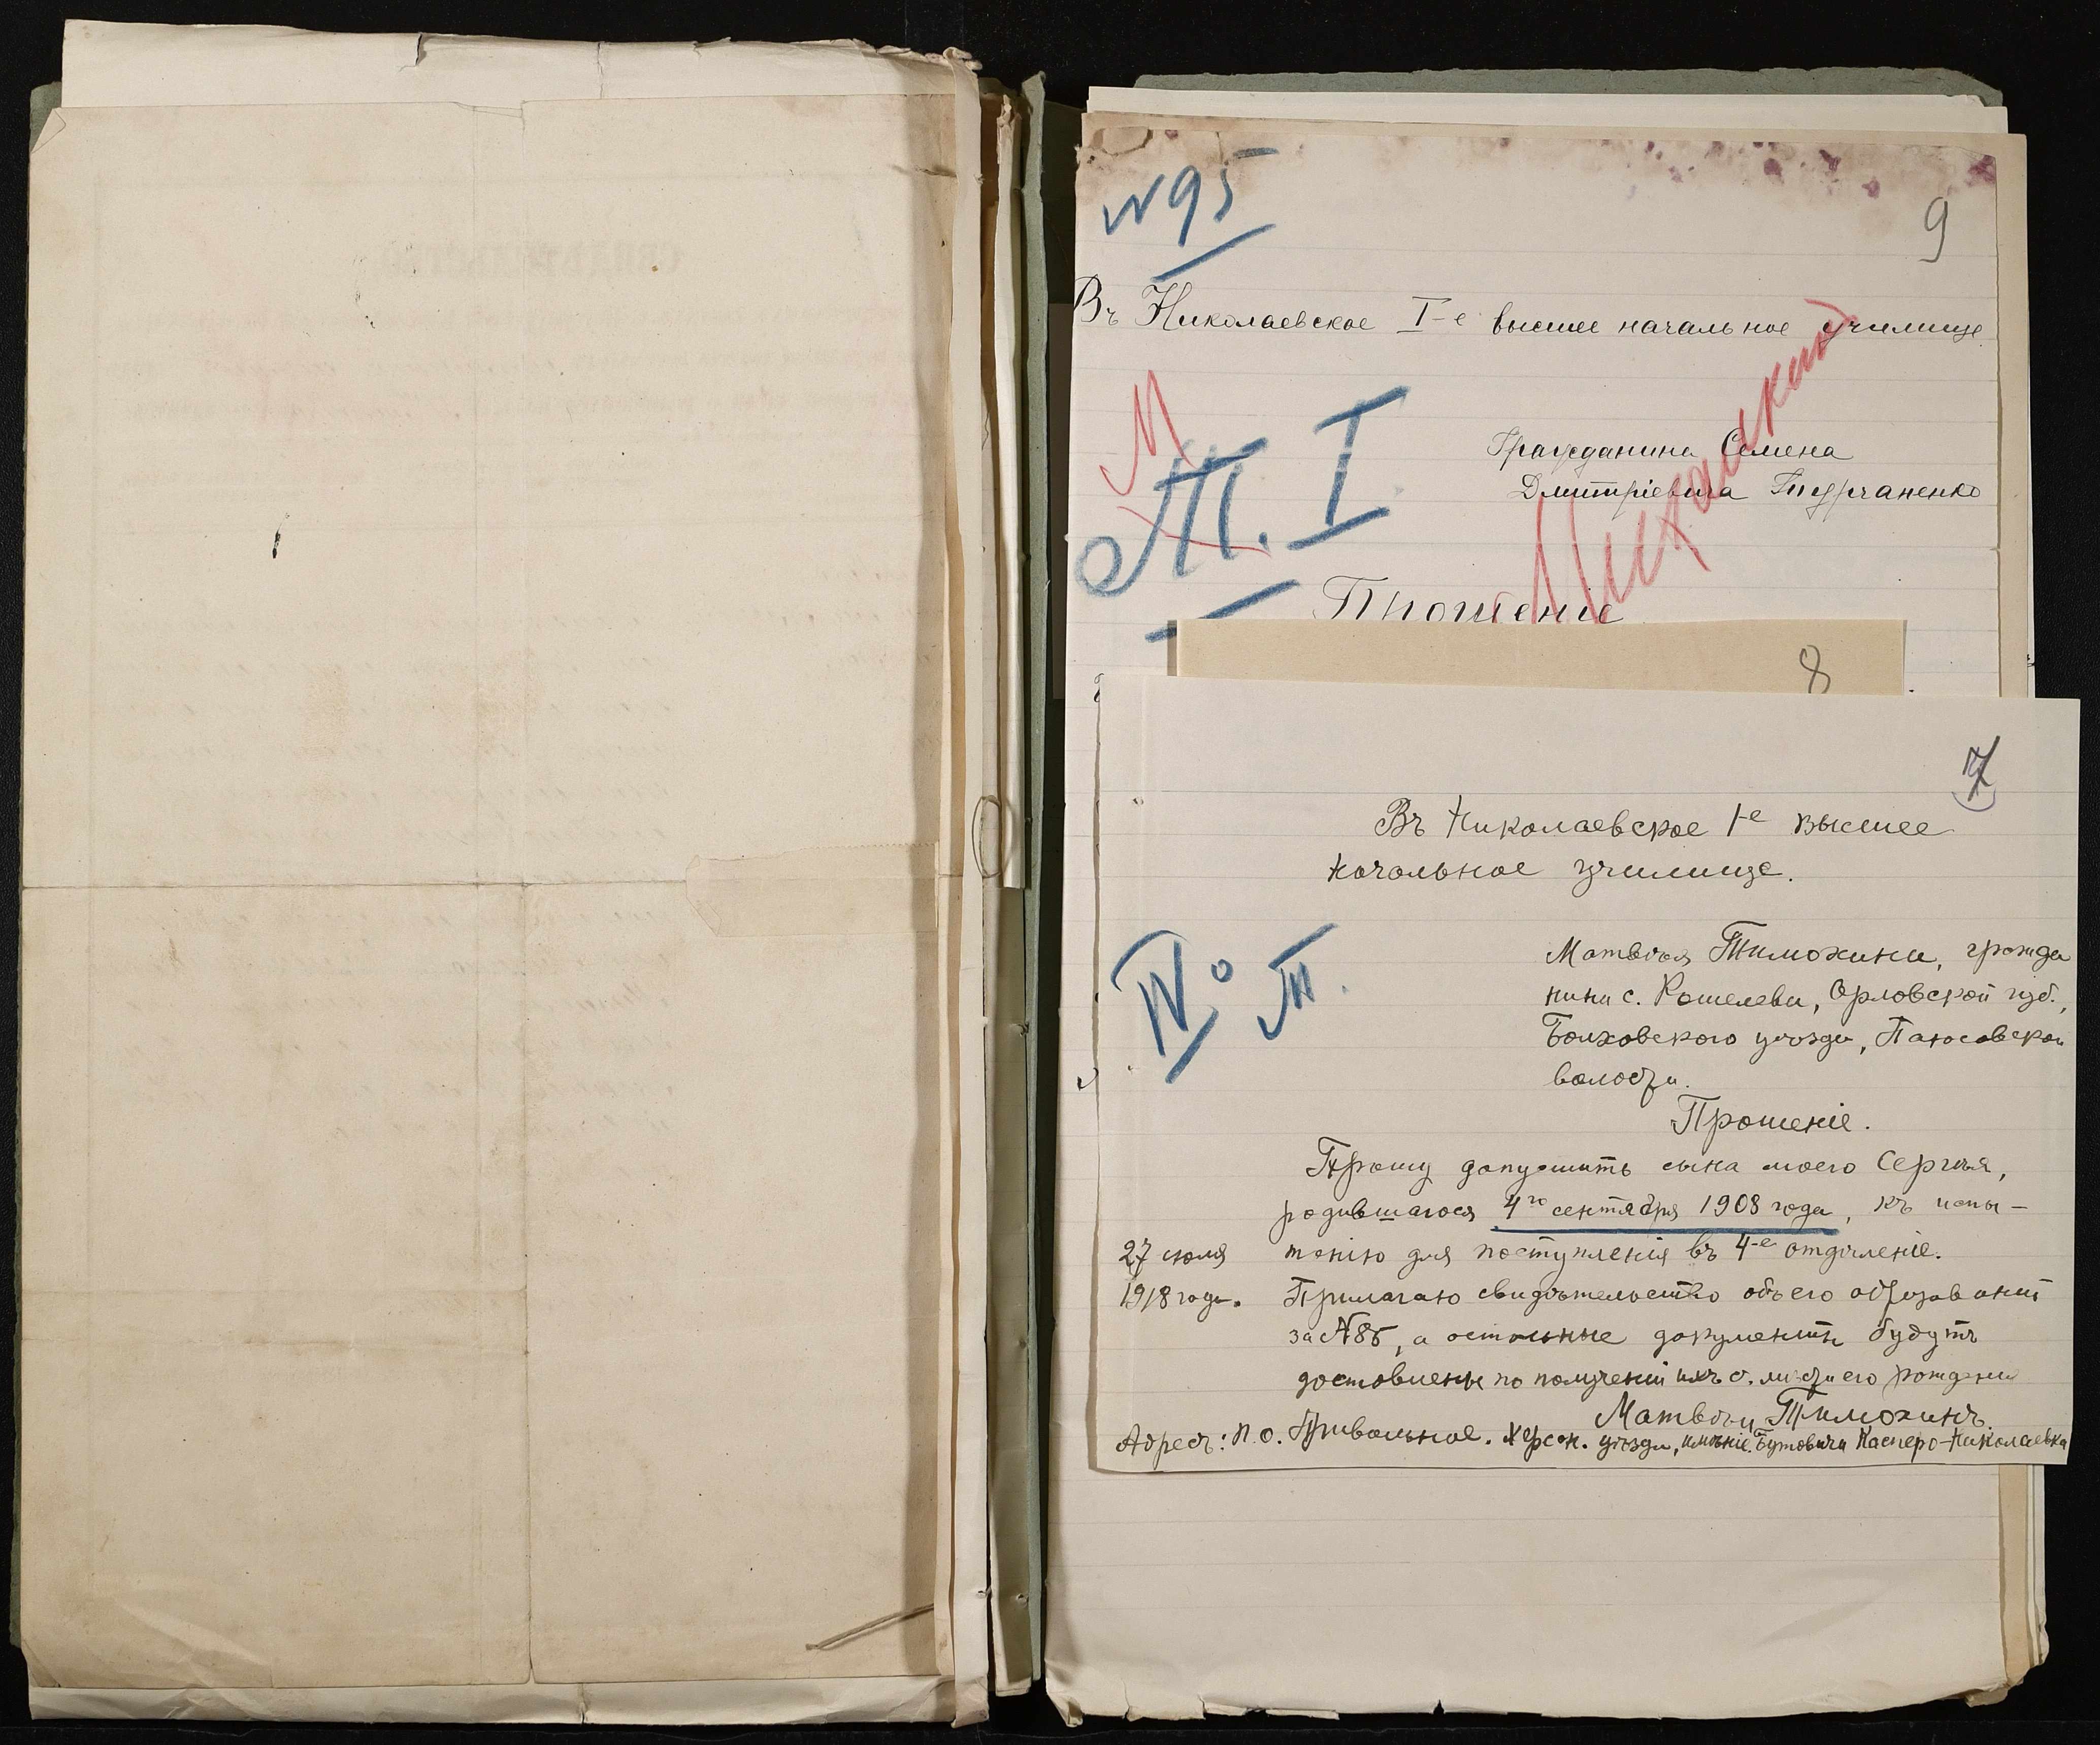 №95
9
Въ Николаевское I-е высшее начальное училище
Гражданина Семена
Дмитріевича Турчаненко
М
Т. I
Прошеніе
8
7
Въ Николаевское 1-е высшее
начальное училище.
IV° Т.
Матвѣя Тимохина, гражда
нина с. Кошелева, Орловской губ.,
Болховского уѣзда,
волости.
Прошеніе.
Прошу допустить сына моего Сергѣя,
родившагося 4го сентября 1903 года, къ испы-
27 июля
1918 года.
танію для поступленія въ 4-е отдѣленіе.
Прилагаю свидѣтельство объ его образованіи
за №85, а остальные документы будутъ
доставлены по полученіи ихъ с. мѣста его рожденія
Матвѣй Тимохинъ.
Адресъ: п.о. Привольное. Херсон. уѣзда, имѣніе Бутовича Касперо-Николаевка